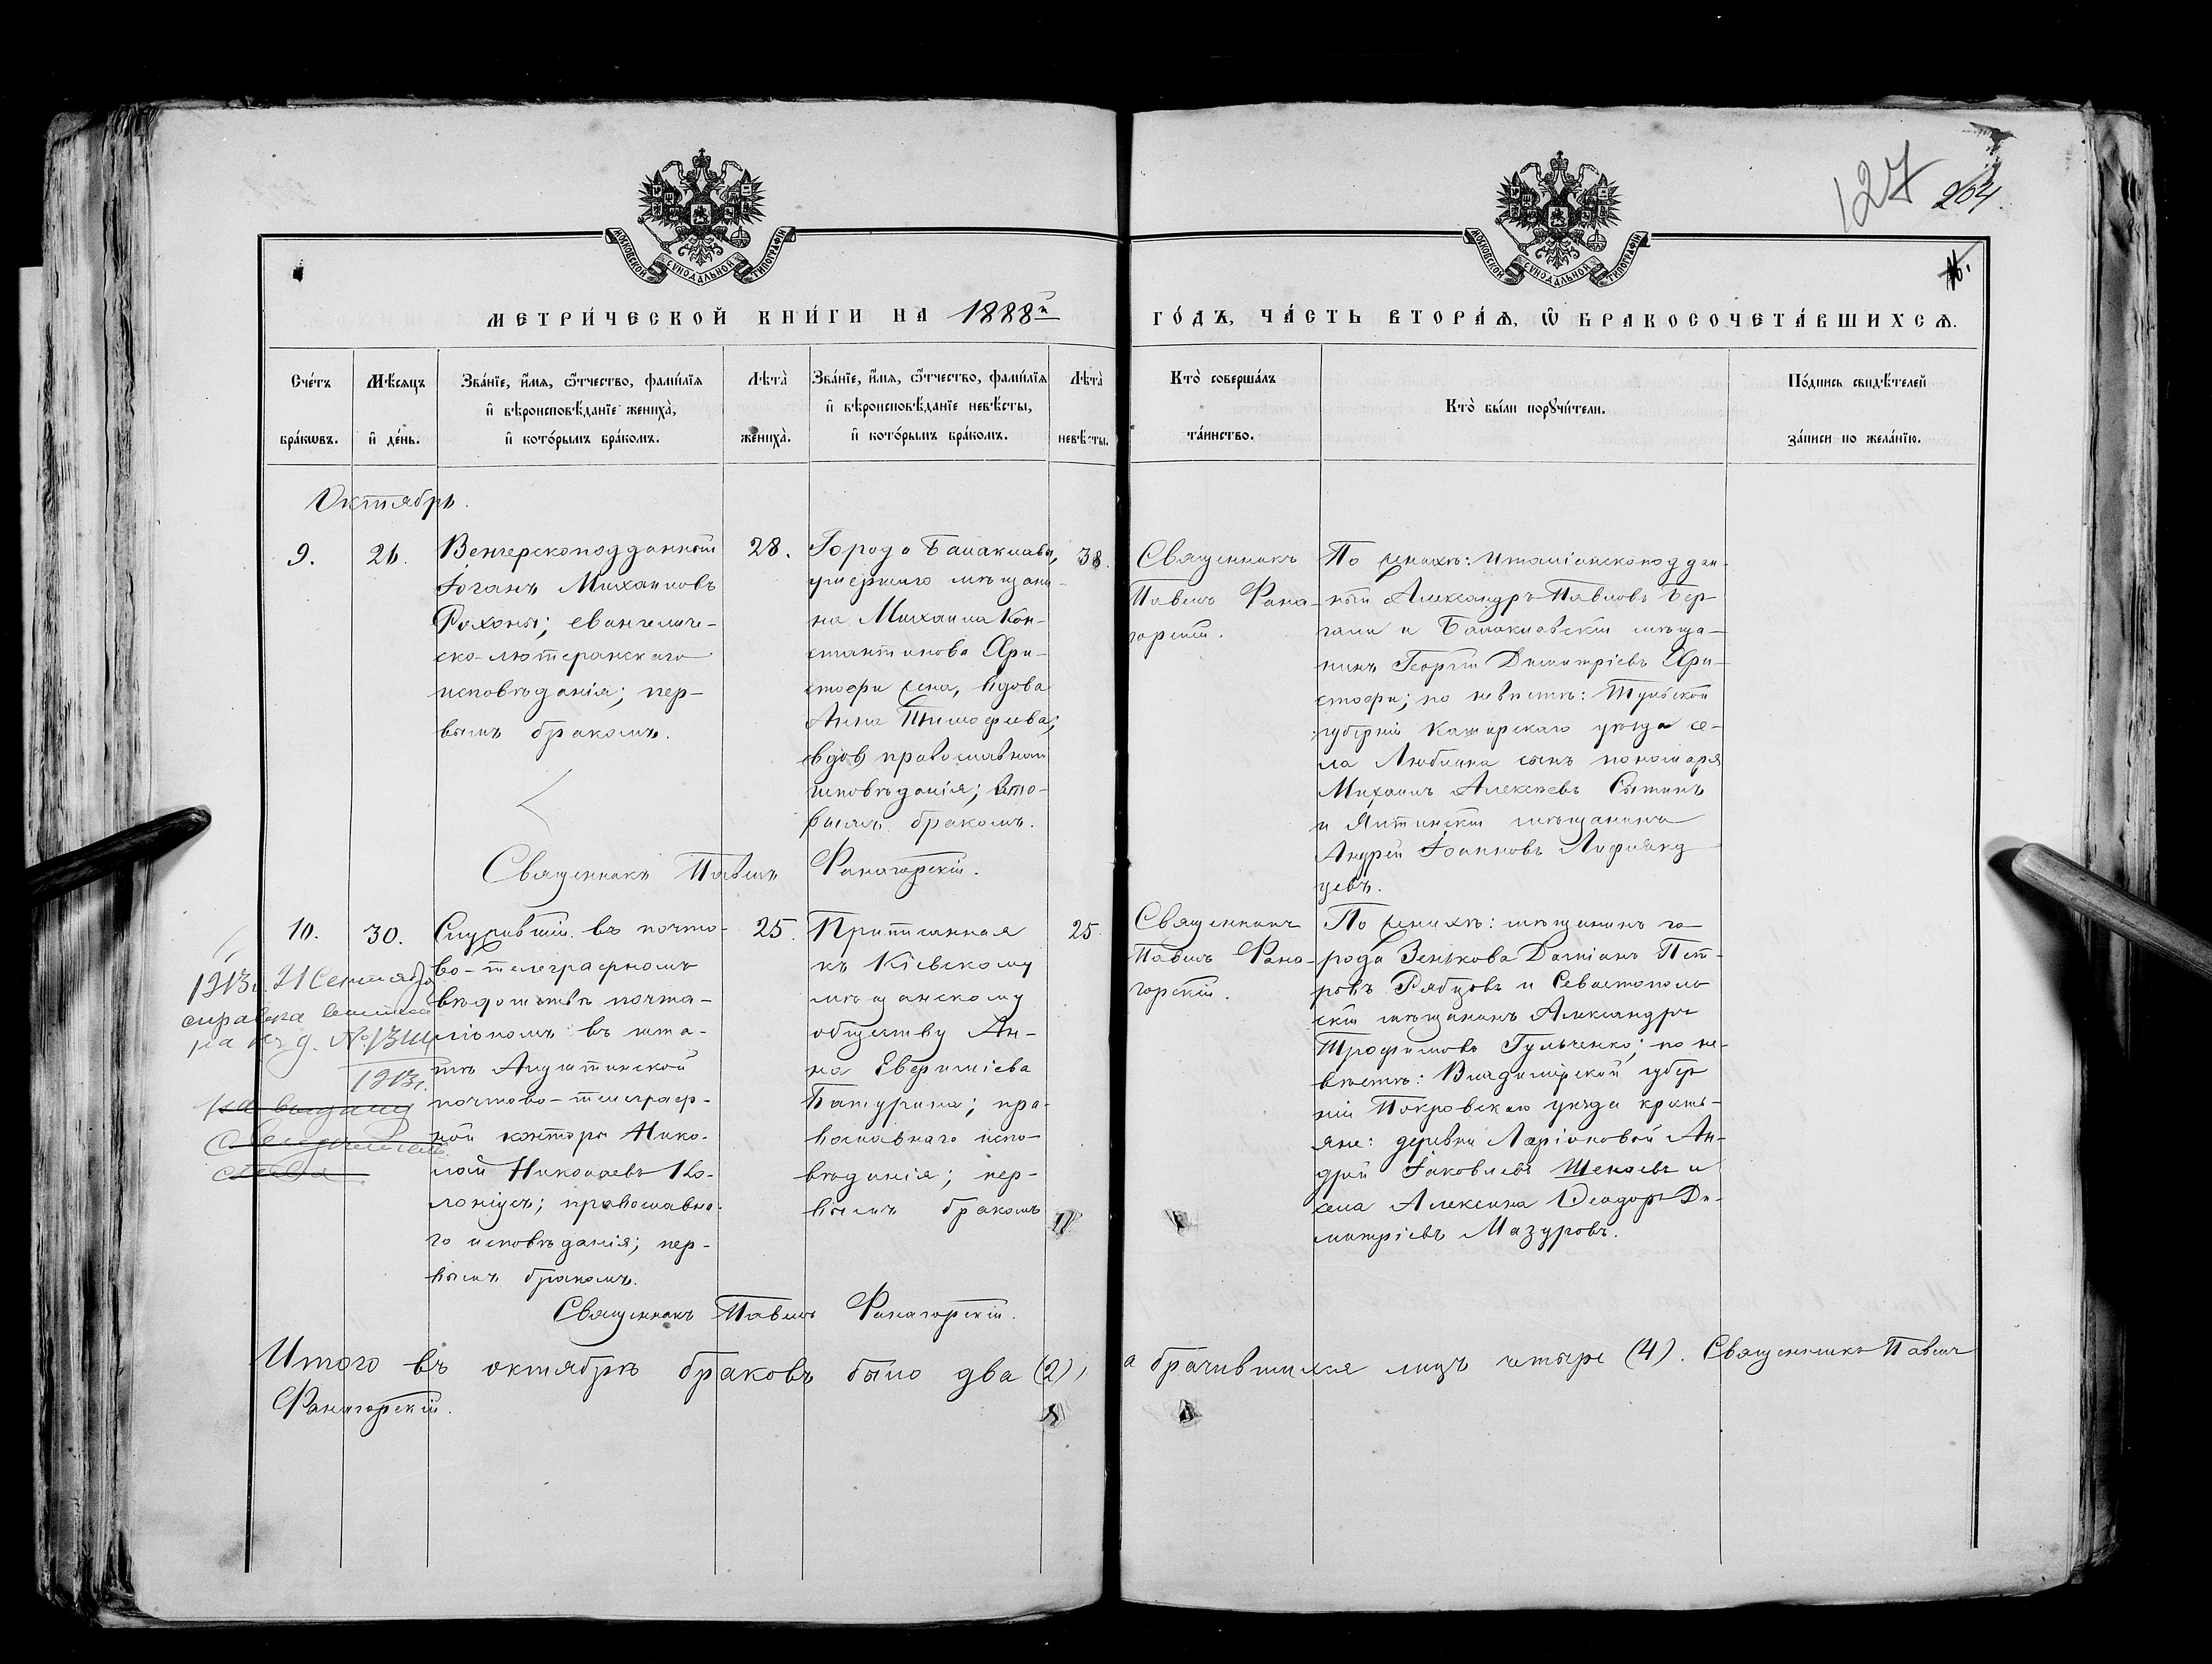 127 204
16.
МОСКОВСКОЙ СѴНОДАЛЬНОЙ ТИПОГРАФІИ
МОСКОВСКОЙ СѴНОДАЛЬНОЙ ТИПОГРАФІИ
МЕТРИ́ЧЕСКОЙ КНИ́ГИ НА 1888й ГО́ДЪ, ЧА́СТЬ ВТОРА́Ѧ, Ѿ БРАКОСОЧЕТА́ВШИХСѦ.
Сче́тъ
бра́кѡвъ.
Мѣ́сяцъ
и҆ де́нь.
Зва́нїе, и҆́мѧ, ѻ҆́тчество, фами́лїѧ
и҆ вѣроисповѣ́данїе жениха̀,
и҆ кото́рымъ бра́комъ.
Лѣта̀
жениха̀.
Зва́нїе, и҆́мѧ, ѻ҆́тчество, фами́лїѧ
и҆ вѣроисповѣ́данїе невѣ́сты,
и҆ кото́рымъ бра́комъ.
Лѣта̀
невѣ́сты.
Кто̀ соверша́лъ
та́инство.
Кто̀ бы́ли порꙋчи́тели.
По́дпись свидѣ́телей
за́писи по жела́нїю.
Октябрь.
9.
26.
Венгерскоподданный
Іоганъ Михаиловъ
Рохоны; евангеличе-
ско-лютеранскаго
исповѣданія; пер-
вымъ бракомъ.
28.
Города Балаклавы,
умершаго мѣщани-
на Михаила Кон-
стантинова Хри-
стофи жена, вдова
Анна Тимофеева;
вдов православнаго
исповѣданія; вто-
рымъ бракомъ.
38.
Священникъ
Павелъ Фана-
горскій.
По женихѣ: итальянскоподдан-
ный Александръ Павловъ Бер-
гали и Балаклавскій мѣща-
нинъ Георгій Димитріевъ Хри-
стофи; по невѣстѣ: Тульской
губерніи Каширскаго уѣзда се-
ла сынъ пономаря
Михаилъ Алексѣевъ Сытинъ
и Ялтинскій мѣщанинъ
Андрей Іоанновъ
цевъ.
Священникъ Павелъ Фанагорскій.
10.
30.
Служившій въ почто-
во-телеграфномъ
вѣдомствѣ почта-
ліономъ въ шта-
тѣ Алуштинской
почтово-телеграф-
ной конторы Нико-
лай Николаевъ Ко-
лоніусъ; православна-
го исповѣданія; пер-
вымъ бракомъ.
25.
Приписанная
къ Кіевскому
мѣщанскому
обществу Ан-
на Евфиміева
Батурина; пра-
вославнаго испо-
вѣданія; пер-
вымъ бракомъ
25.
Священникъ
Павелъ Фана-
горскій.
По женихѣ: мѣщанинъ го-
рода Зенькова Даміанъ Пет-
ровъ Рябцовъ и Севастополь
скій мѣщанинъ Александръ
Трофимовъ Гульченко; по не-
вѣстѣ: Владимірской губер
ніи Покровскаго уѣзда кресть-
яне: деревни Ларіоновой Ан-
дрей Іаковлевъ Шекаевъ и
села Алексина Ѳеодоръ Ди-
митріевъ Мазуровъ.
1913г. 21 Сентяб
справка
на д. №
1913г.
на выдачу
свидѣтель
ства
Священникъ Павелъ Фанагорскій.
Итого въ октябрѣ браковъ было два (2), а брачившихся лицъ четыре (4). Священникъ Павелъ
Фанагорскій.